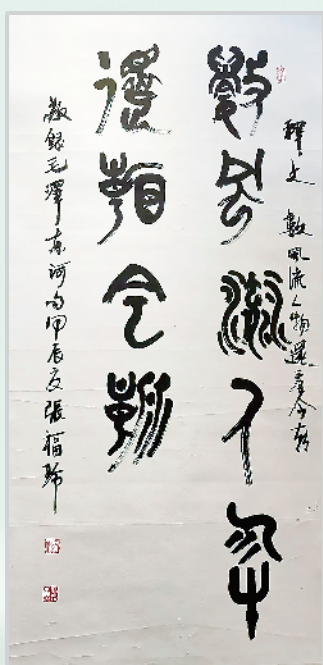 釋文 數風流人物還看今朝
數風流人物
還看今朝
敬錄毛澤東詞句甲辰夏張福